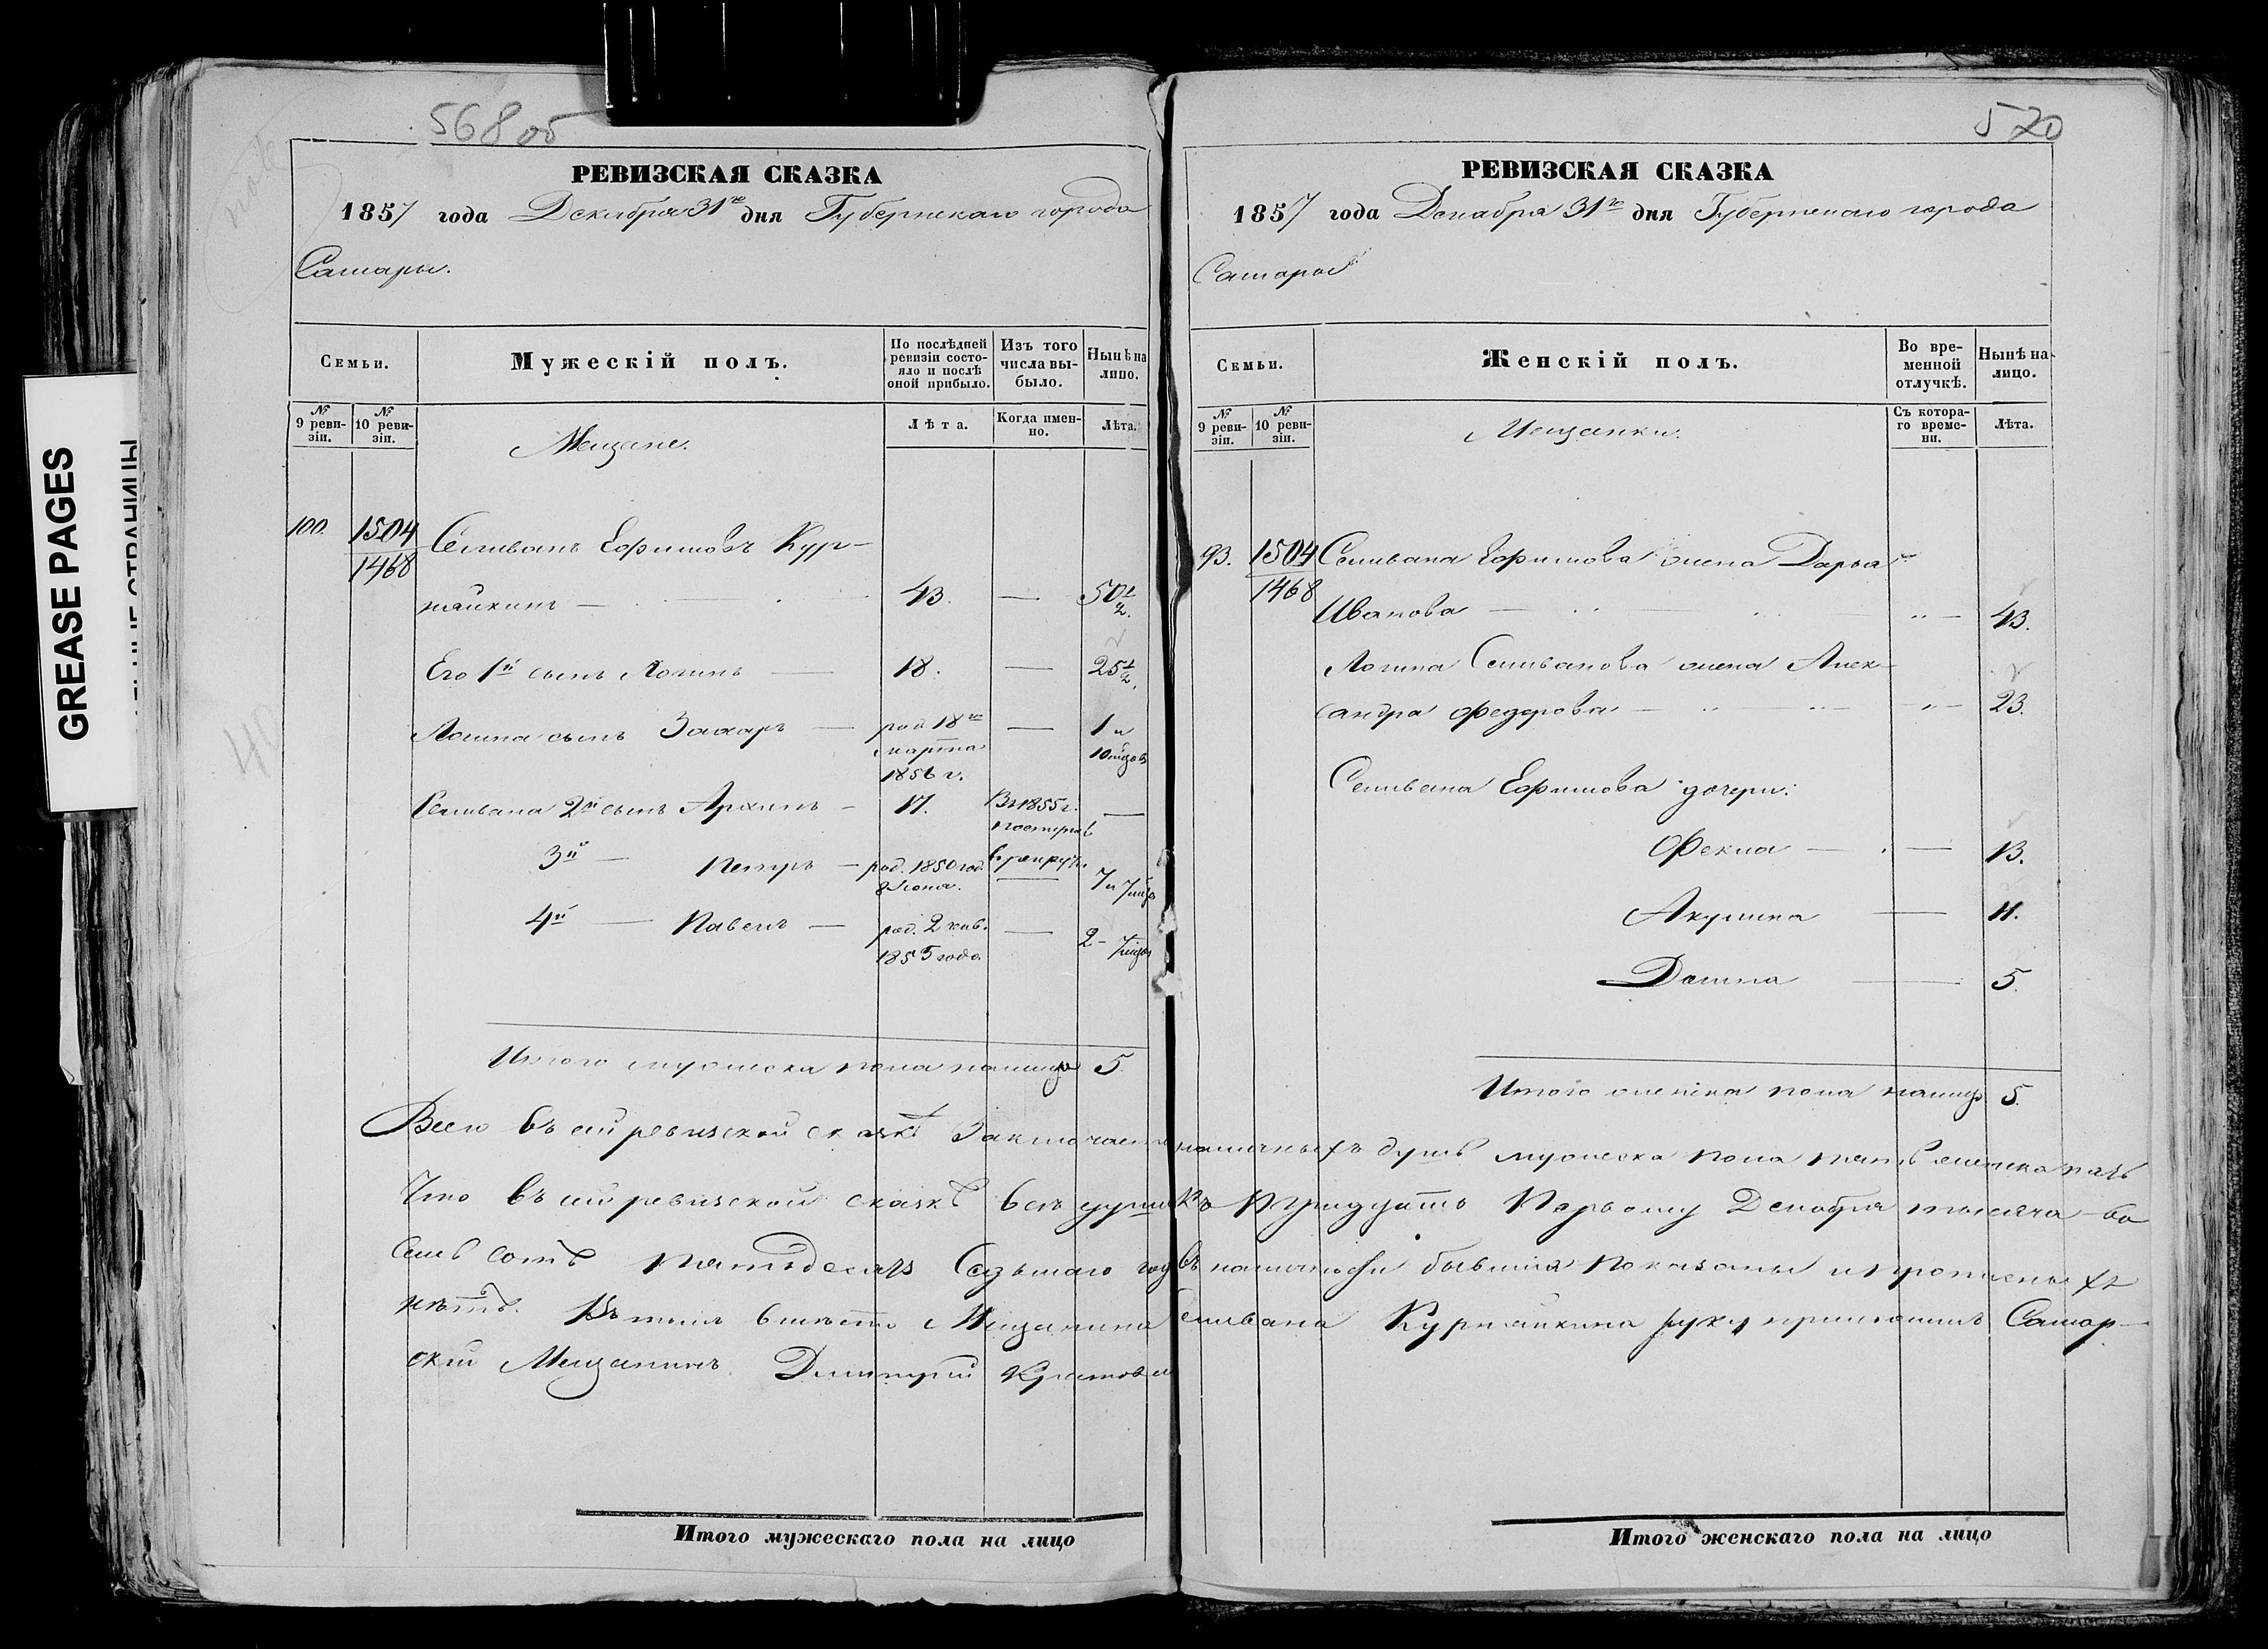 568 об
РЕВИЗСКАЯ СКАЗКА
1857 года Декабря 31го дня Губернскаго города
Самары.
Семьи.
Мужескій полъ.
По послѣдней ревизіи состояло и послѣ оной прибыло.
Изъ того числа выбыло.
Нынѣ на лицо.
№ 9 ревизіи.
№ 10 ревизіи.
Мещане.
Лѣта.
Когда именно.
Лѣта.
100. 1504 Селиванъ Ефимовъ Кур-
1468
43. — 50 1/2.
Его 1й сынъ Логинъ — 18. — 25 1/2.
Логина сынъ Захаръ — род 18го — 1 и
марта 10 мѣся
1856 г.
Селивана 2й сынъ Архипъ — 17. Въ 1855 г. —
поступ. в
рекруты.
3й — Петръ — род. 1850 год. — 7 и 7 мѣся
4й — Павелъ — род. 2 — 2 - 7 мѣся
1855 года
Итого мужеска пола налицо 5.
570
РЕВИЗСКАЯ СКАЗКА
1857 года Декабря 31го дня Губернскаго города
Самары
Семьи.
Женскій полъ.
Во временной отлучкѣ.
Нынѣ на лицо.
№ 9 ревизіи.
№ 10 ревизіи.
Мещанки.
Съ котораго времени.
Лѣта.
93. 1504 Селивана Ефимова жена Дарья
1468
Иванова — " — 43.
Логина Селиванова жена Алек-
сандра Федорова — " — 23.
Селивана Ефимова дочери:
Фекла — 13.
Акулина — 11.
Домна — 5.
Итого женска пола налицо 5.
Всего въ сей ревизской сказкѣ заключается наличныхъ душъ мужеска пола пять женска пять
Что въ сей ревизской сказкѣ всѣ души къ тридцать первому Декабря тысяча во-
семь сотъ пятьдесятъ седьмаго года въ наличности бывшія показаны и прописныхъ
нѣтъ. Въ томъ вмѣсто Мещанина Селивана руку приложилъ Самар-
скій Мещанинъ Дмитрій
Итого мужескаго пола на лицо
Итого женскаго пола на лицо
GREASE PAGES